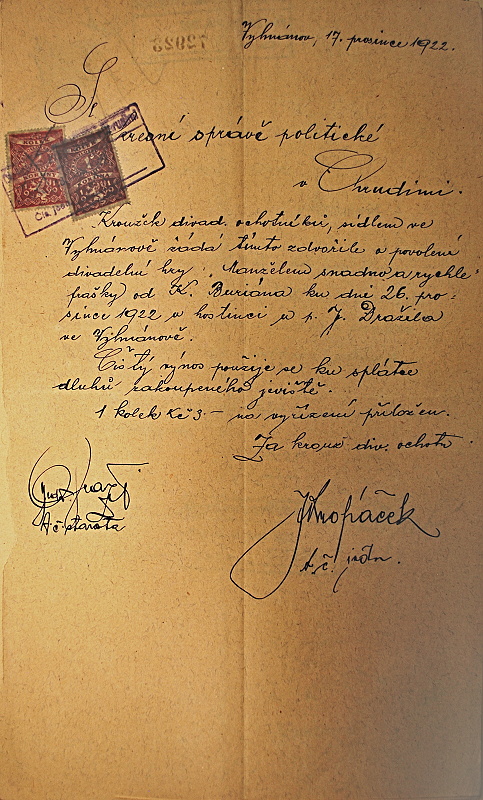 Vyhnánov, 17. prosince 1922.
správě politické
v Chrudimi.
Kroužek divad. ochotníků, sídlem ve
Vyhnánově žádá tímto zdvořile o povolení
divadelní hry „Manželem snadno a rychle“
frašky) od K. Buriána ku dni 26. pro-
since 1922 v hostinci u p. J. Dražila
ve Vyhnánově.
Čistý výnos použije se ku splátce
dluhů zakoupeného jeviště.
1 kolek Kč 3.— na vyřízení přiložen.
Za krouž. div. ochotn.
t. č. starosta
JKropáček
t. č. jedn.